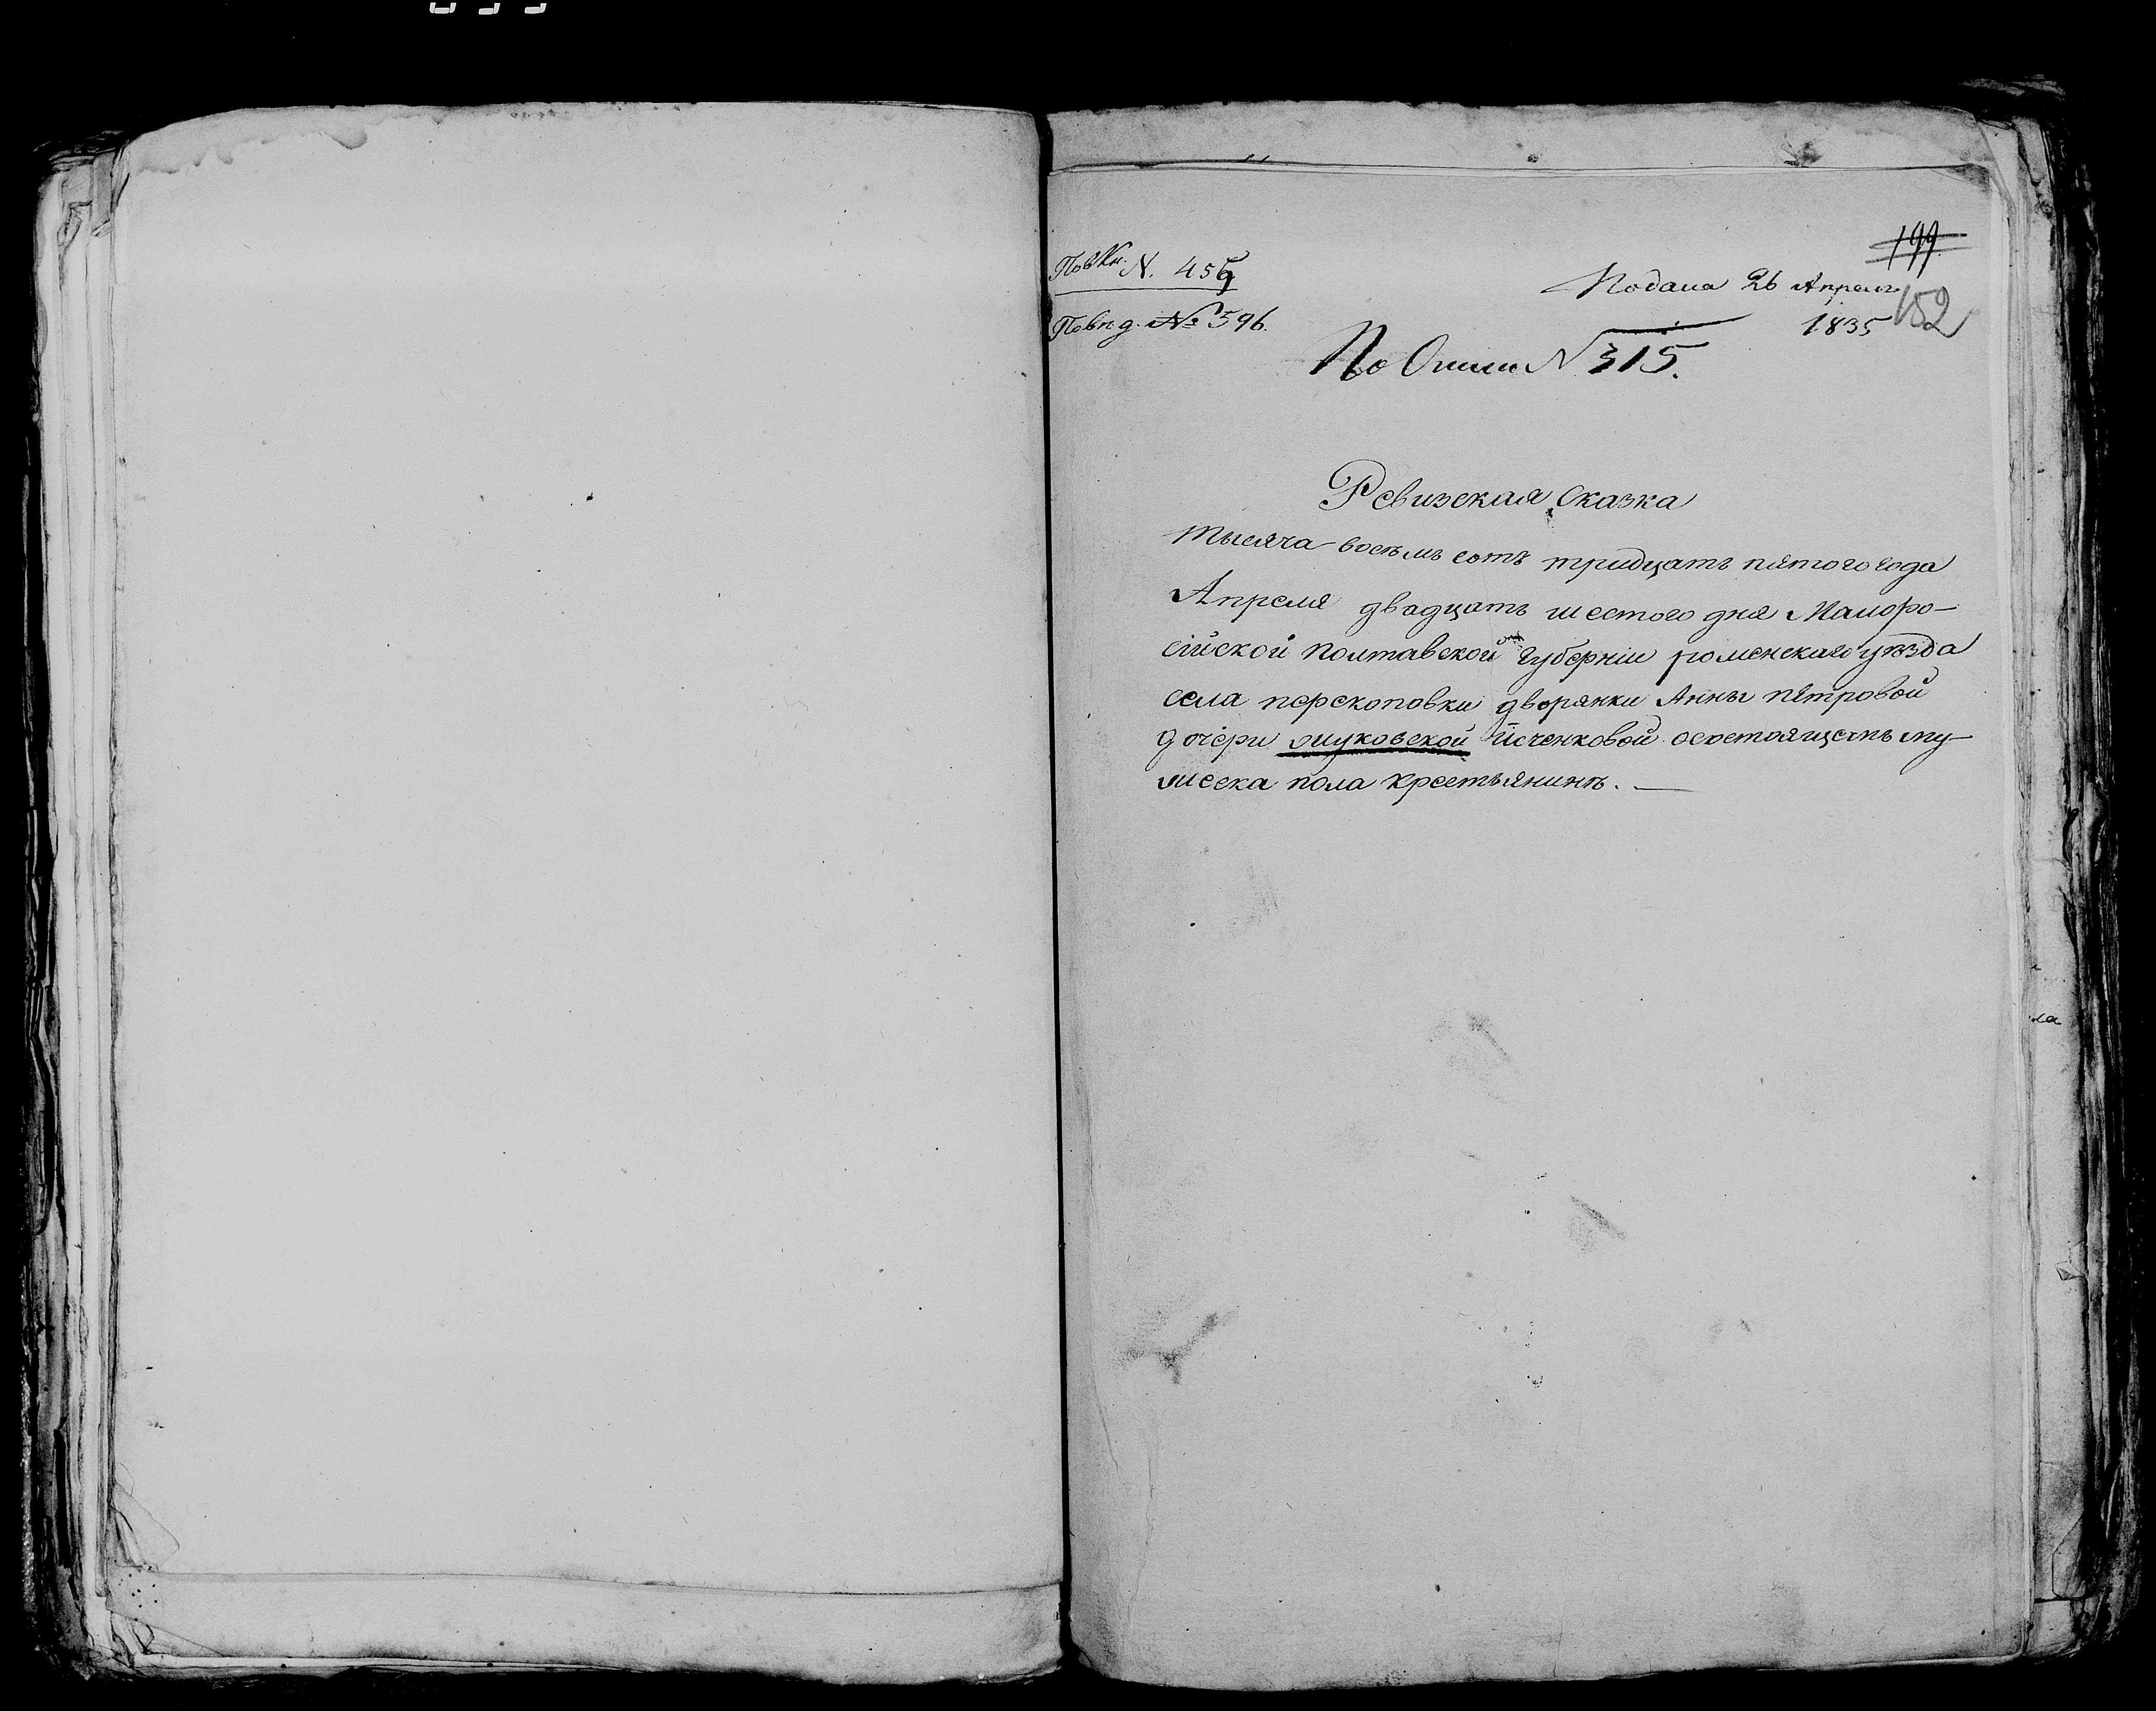 199
По в Кн. N. 459
Подана 26 Апреля
152
По вн д. № 596.
1835
По Описи N 315.
Ревизская Сказка
тысяча восемь сотъ тридцать пятого года
Апреля двадцать шестого дня Малоро-
сійской полтавской губерніи роменскаго уезда
села перекоповки дворянки Анны петровой
дочери жуковской Исченковой осостоящемъ му-
жеска пола крестьянине. —
ка